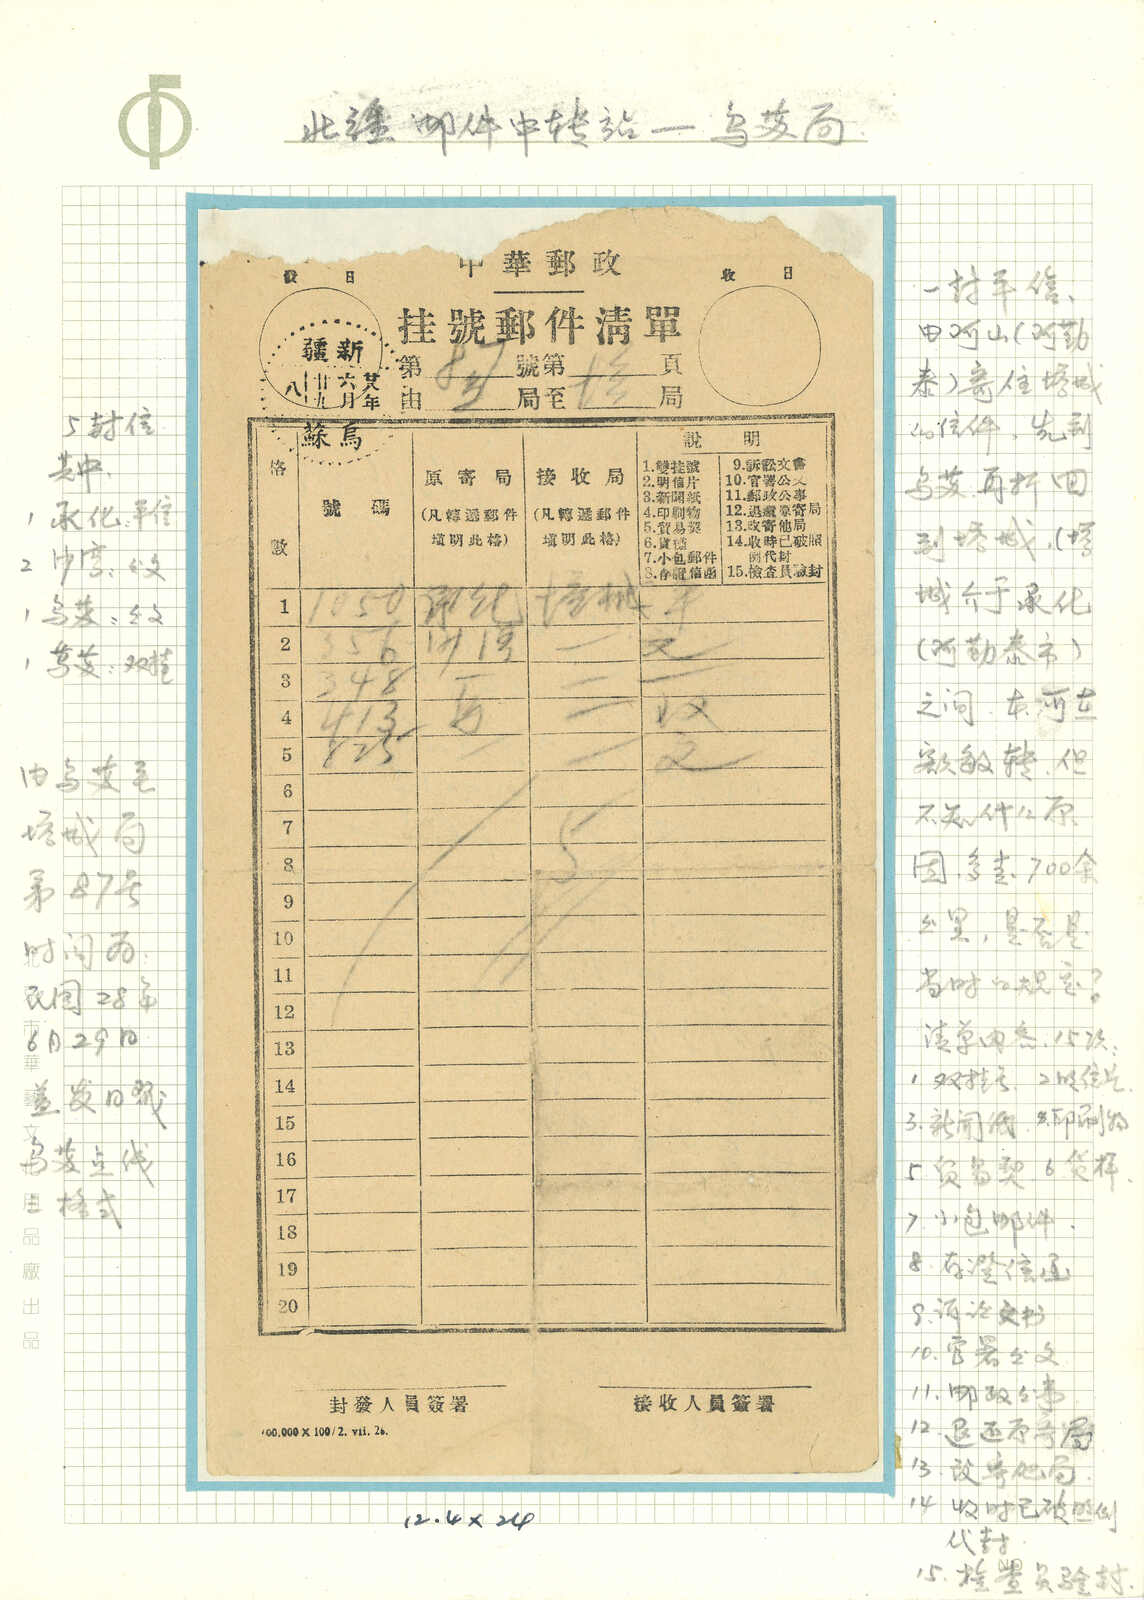 北疆邮件中转站一乌苏局
中華郵政
發 日
收 日
挂號郵件清單
第 87 號第 頁
由 局至 塔 局
新疆
廿八年六月廿九
烏蘇
格數
號碼
原寄局
(凡轉遞郵件填明此格)
接收局
(凡轉遞郵件填明此格)
說明
1.雙挂號
2.明信片
3.新聞紙
4.印刷物
5.貿易契
6.貨樣
7.小包郵件
8.存證信函
9.訴訟文書
10.官署公文
11.郵政公事
12.退還原寄局
13.改寄他局
14.收時已破照例代封
15.檢查員驗封
1 1050 承化 塔城 平
2 356 沙灣 一 文
3 348 一 二 一
4 413 乌 二 双
5 425 一 文
6
7
8
9
10
11
12
13
14
15
16
17
18
19
20
5
封發人員簽署
接收人員簽署
100,000 X 100/2. vii. 26.
12.4 x 24
5封信
其中
1 承化:平信
2 沙湾:公文
1 乌苏:公文
1 乌苏:双挂
由乌苏至
塔城局
第87号
时间为
民国28年
6月29日
盖发日戳
乌苏点线
格式
一封平信、
由阿山(阿勒
泰)寄住塔城
的信件,先到
乌苏再折回
到塔城,(塔
城介于承化
(阿勒泰市)
之间,本可在
额敏转,但
不知什么原
因,多走700余
公里,是否是
当时的规定?
清单内容15项:
1 双挂号 2 明信片
3.新闻纸 4.印刷物
5 贸易契 6 货样
7 小包邮件
8.存证信函
9.诉讼文书
10.官署公文
11.邮政公事
12.退还原寄局
13.改寄他局
14 收时已破照例
代封
15.检查员验封.
華
文
用
品
廠
出
品